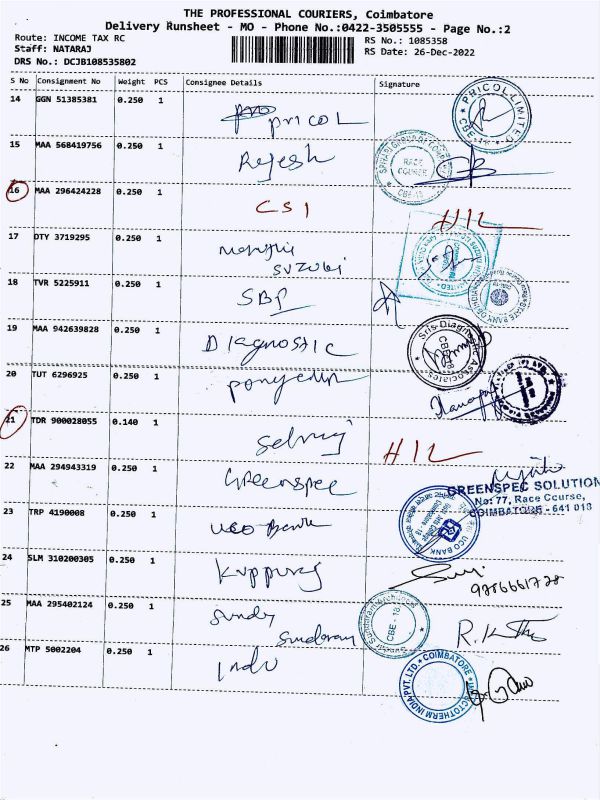 THE PROFESSIONAL COURIERS, Coimbatore
Delivery Runsheet - MO - Phone No.:0422-3505555 - Page No.:2
Route: INCOME TAX RC
RS No.: 1085358
Staff: NATARAJ
RS Date: 26-Dec-2022
DRS No.: DCJB108535802
S No Consignment No Weight PCS Consignee Details Signature
14 GGN 51385381 0.250 1 PRICOL
PRICOL LIMITED
CBE-18
15 MAA 568419756 0.250 1 Rajesh
RACE
COURSE
CBE-18
16 MAA 296424228 0.250 1 CSI HIL
17 DTY 3719295 0.250 1
SUZUKI
18 TVR 5225911 0.250 1 SBI
19 MAA 942639828 0.250 1 DIAGNOSTIC
CBE-18
20 TUT 6296925 0.250 1
21 TDR 900028055 0.140 1 Selvaraj HIL
22 MAA 294943319 0.250 1 Greenspec
GREENSPEC SOLUTION
No: 77, Race Course,
COIMBATORE - 641 018
23 TRP 4190008 0.250 1 UCO Bank
UCO BANK
24 SLM 310200305 0.250 1 Kuppuraj
9786661728
25 MAA 295402124 0.250 1 Sundar
Sundaram
CBE - 18
26 MTP 5002204 0.250 1 Indu
COIMBATORE